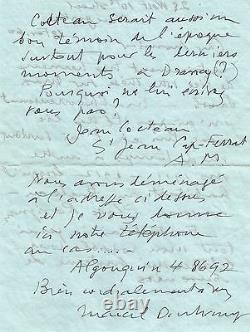 Cocteau serait aussi un
bon témoin de l'époque
surtout pour les derniers
moments à Drancy (?)
Pourquoi ne lui écrivez
vous pas?
Jean Cocteau
St Jean Cap-Ferrat
A.M.
Nous avons déménagé
à l'adresse ci dessus
et je vous donne
ici notre téléphone
au cas
Algonquin 4 8692
Bien cordialement
Marcel Duchamp